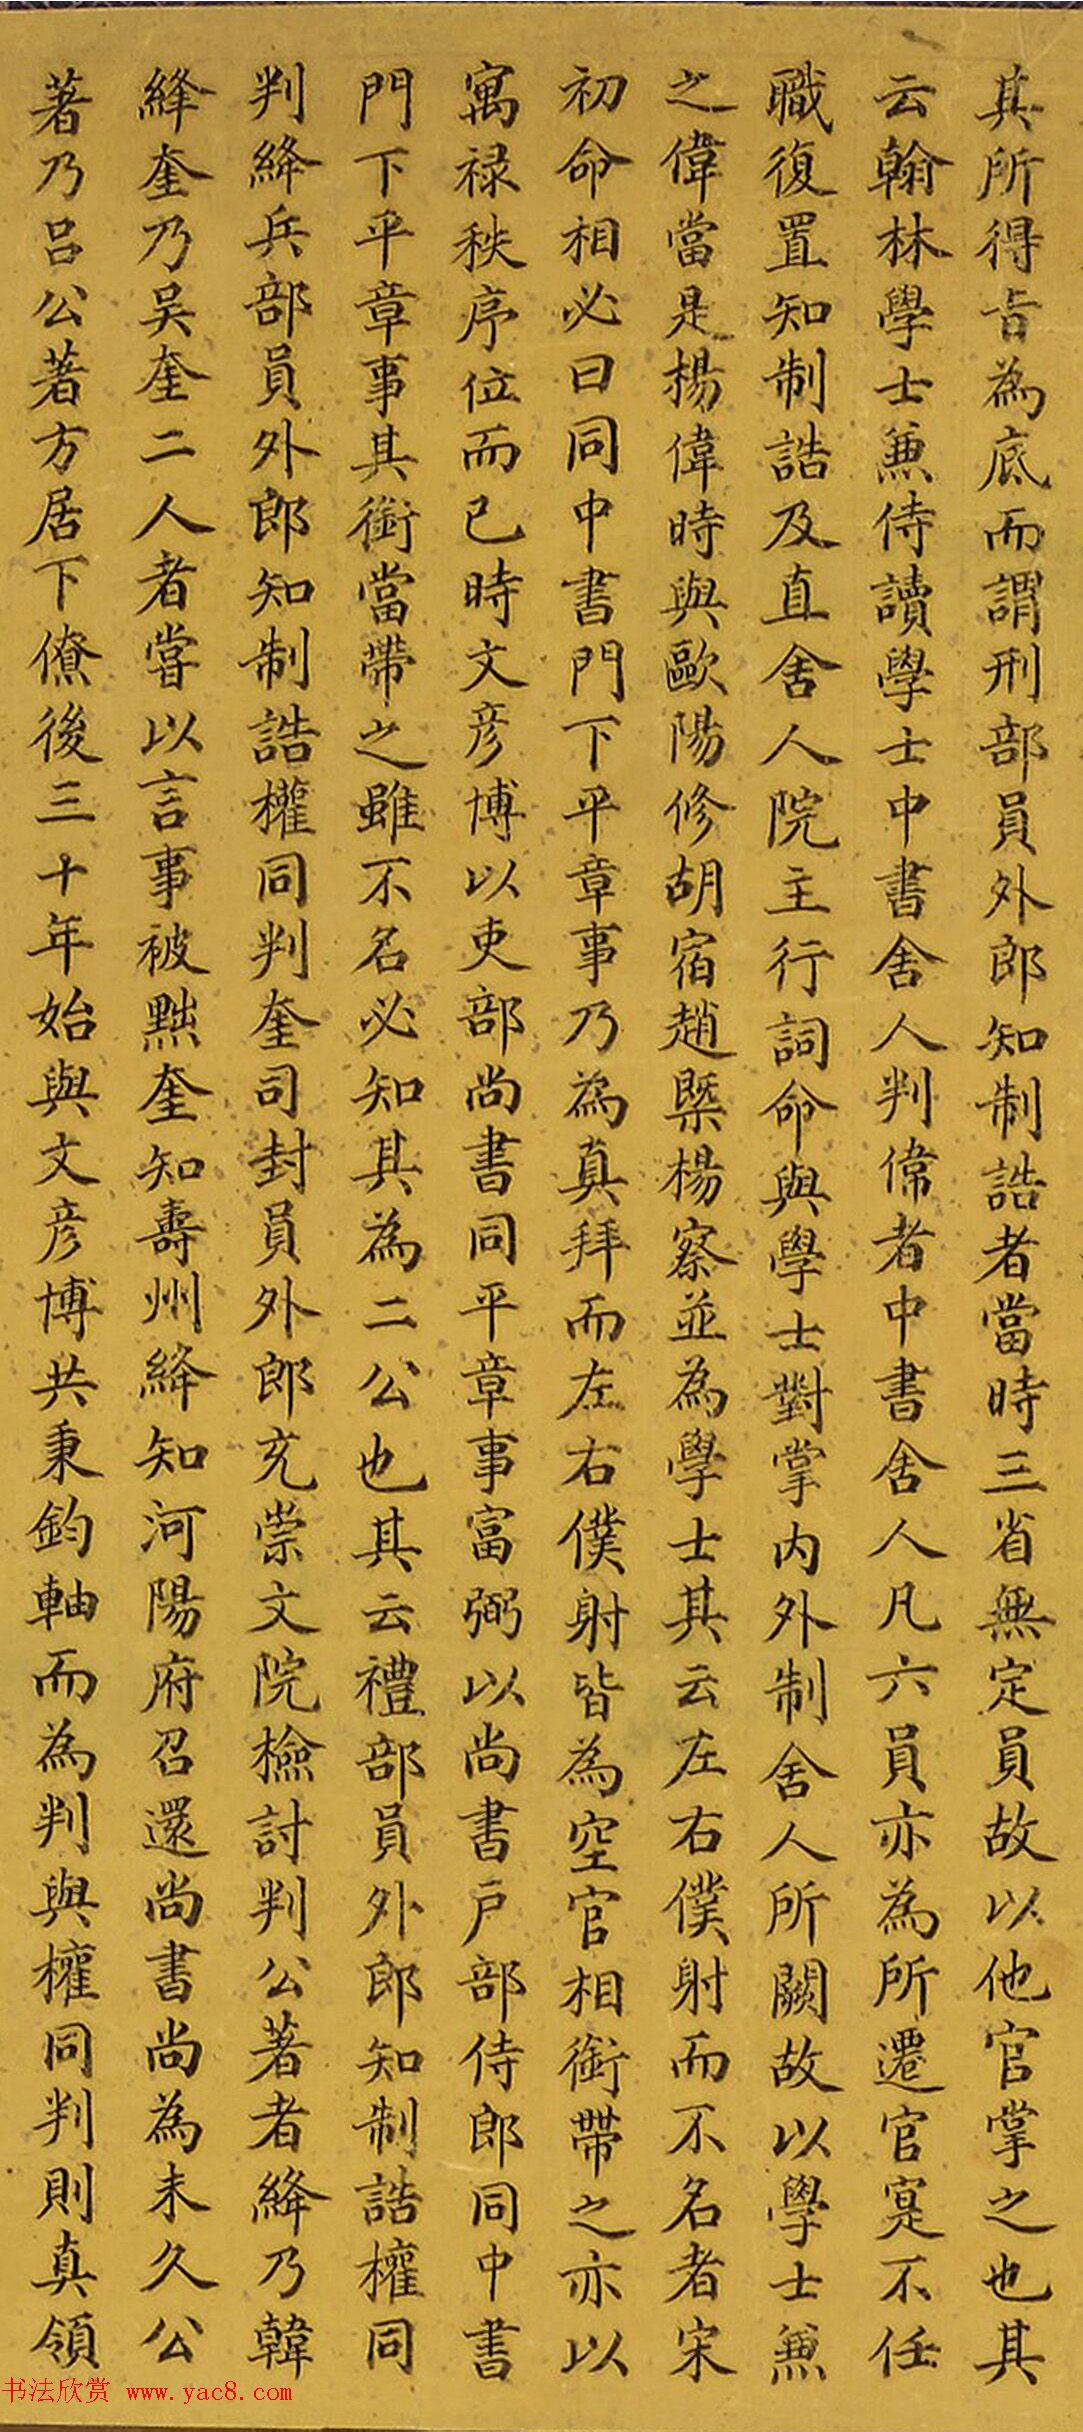 其所得旨為底而謂刑部員外郎知制誥者當時三省無定員故以他官掌之也其
云翰林學士兼侍讀學士中書舍人判偉者中書舍人凡六員亦為所遷官寔不任
職復置知制誥及直舍人院主行詞命與學士對掌內外制舍人所闕故以學士兼
之偉當是楊偉時與歐陽修胡宿趙槩楊察並為學士其云左右僕射而不名者宋
初命相必曰同中書門下平章事乃為真拜而左右僕射皆為空官相銜帶之亦以
寓祿秩序位而已時文彥博以吏部尚書同平章事富弼以尚書戶部侍郎同中書
門下平章事其銜當帶之雖不名必知其為二公也其云禮部員外郎知制誥權同
判絳兵部員外郎知制誥權同判奎司封員外郎充崇文院檢討判公著者絳乃韓
絳奎乃吳奎二人者嘗以言事被黜奎知壽州絳知河陽府召還尚書尚為未久公
著乃呂公著方居下僚後三十年始與文彥博共秉鈞軸而為判與權同判則真領
书法欣赏 www.yac8.com